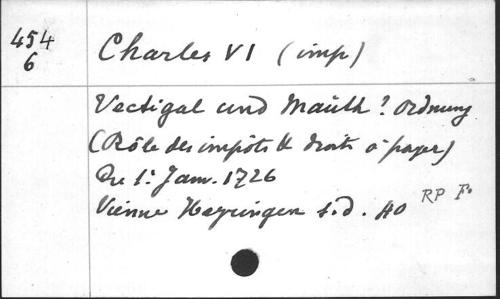 454
6
Charles VI (imp)
Vectigal und Mauth? Ordnung
(Rôle des impôts & droits à payer)
Du 1: Janv. 1726
Vienne Heyringer s.d. 40
RP Fo